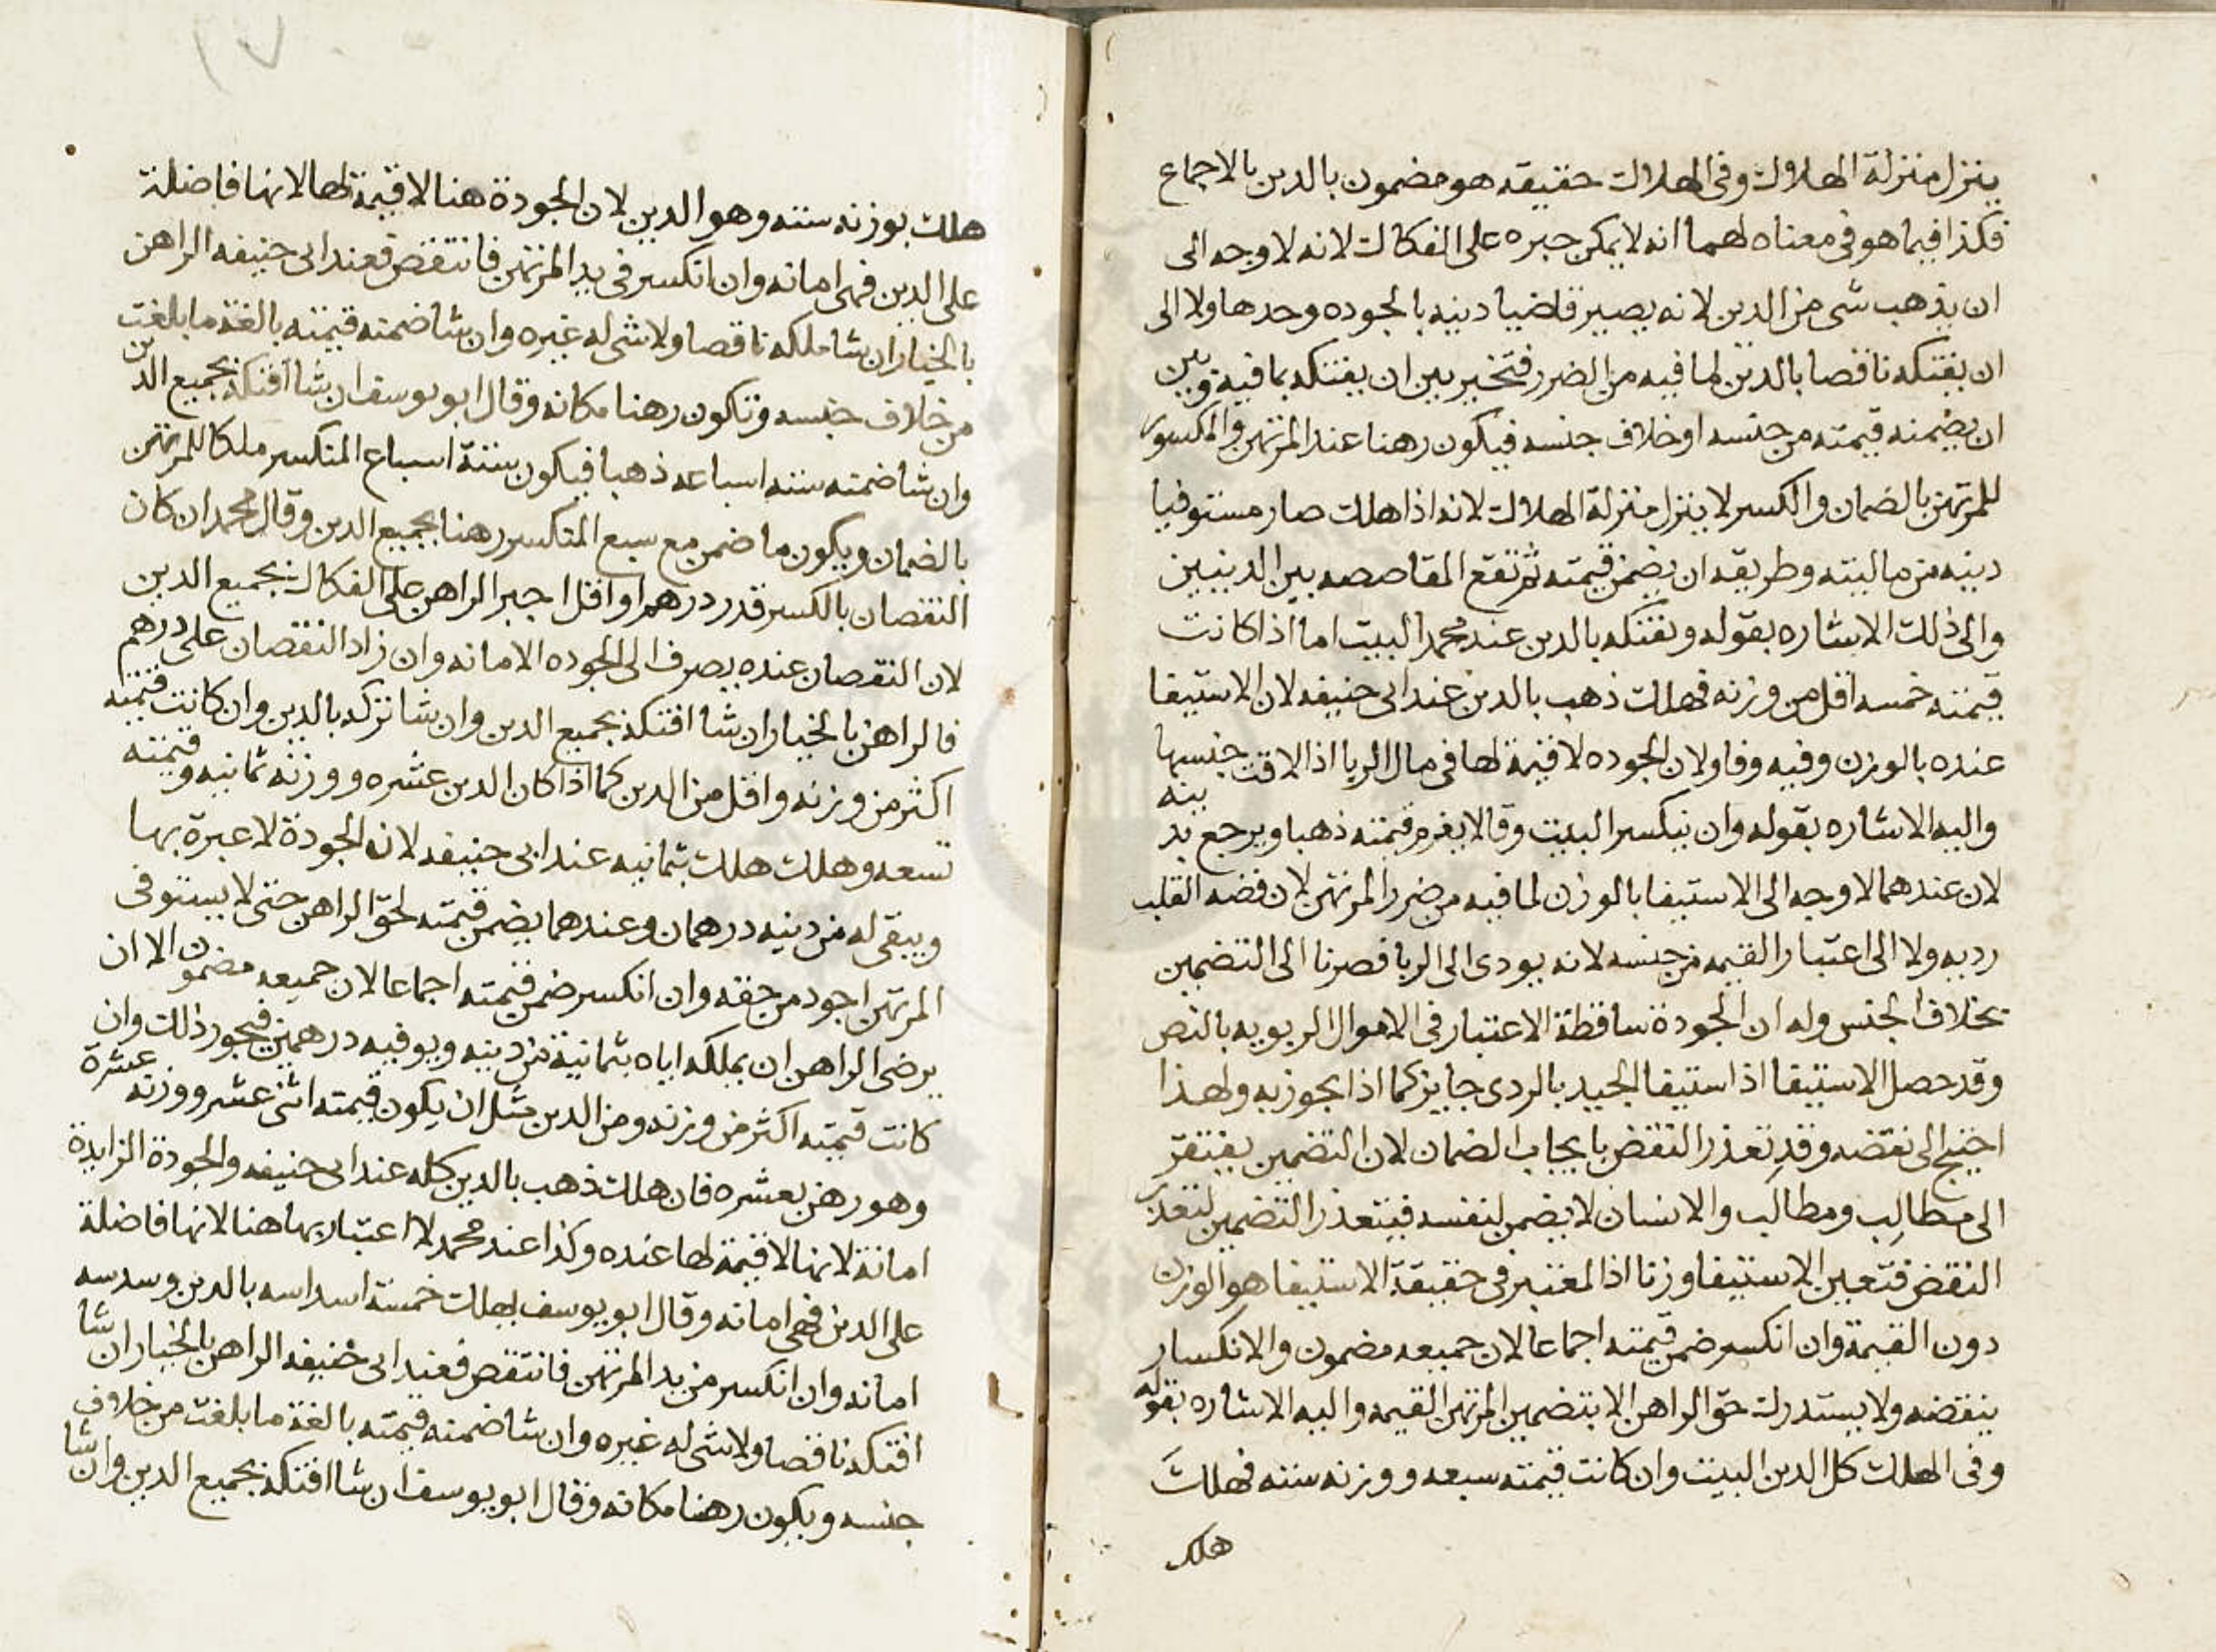 ينزل منزلة الهلاك وفى الهلاك حقيقه هو مضمون بالدين بالاجماع
فكذا فيما هو فى معناه لهما انه لا يمكن جبره على الفكاك لانه لا وجه الى
ان يذهب شى من الدين لانه يصير قاضيا دينه بالجوده وحدها ولا الى
ان يفتكه ناقصا بالدين لما فيه من الضرر فتخير بين ان يفتكه بما فيه وبين
ان يضمنه قيمته من جنسه او خلاف جنسه فيكون رهنا عند المرتهن والمكسور
للمرتهن بالضمان والكسر لا ينزل منزلة الهلاك لانه اذا هلك صار مستوفيا
دينه من ماليته وطريقه ان يضمن قيمته ثم تقع المقاصصه بين الدينين
والى ذلك الاشاره بقوله ونفتكه بالدين عند محمد البيت اما اذا كانت
قيمته خمسه اقل من وزنه فهلك ذهب بالدين عند ابى حنيفه لان الاستيفا
عنده بالوزن وفيه وفا ولان الجوده لا قيمة لها فى مال الربا اذا لاقت جنسها
واليه الاشاره بقوله وان ينكسر البيت وقالا يغرم قيمته ذهبا ويرجع بد ينه
لان عندهما لا وجه الى الاستيفا بالوزن لما فيه من ضرر المرتهن لان فضه القلب
رديه ولا الى اعتبار القيمه من جنسه لانه يودى الى الربا فصرنا الى التضمين
بخلاف الجنس وله ان الجودة ساقطة الاعتبار فى الاموال الربويه بالنص
وقد حصل الاستيفا اذ استيفا الجيد بالردى جايز كما اذا تجوز به ولهذا
احتيج الى نقضه وقد تعذر النقض بايجاب الضمان لان التضمين يفتقر
الى مطالِب ومطالَب والانسان لا يضمن لنفسه فيتعذر التضمين لتعذر
النقض فتعين الاستيفا وزنا اذ المعتبر فى حقيقة الاستيفا هو الوزن
دون القيمة وان انكسر ضمن قيمته اجماعا لان جميعه مضمون والانكسار
ينقصه ولا يستدرك حق الراهن الا بتضمين المرتهن القيمه واليه الاشاره بقوله
وفى الهلك كل الدين البيت وان كانت قيمته سبعه ووزنه سته فهلك
هلك
هلك بوزنه سته وهو الدين لان الجودة هنا لا قيمة لها لانها فاضلة
على الدين فهى امانه وان انكسر فى يد المرتهن فانتقض فعند ابى حنيفه الراهن
بالخيار ان شا ملكه ناقصا ولا شى له غيره وان شا ضمنه قيمته بالغة ما بلغت
من خلاف جنسه وتكون رهنا مكانه وقال ابو يوسف ان شا افتكه بجميع الدين
وان شا ضمنه سته اسباعه ذهبا فيكون ستة اسباع المنكسر ملكا للمرتهن
بالضمان ويكون ما ضمن مع سبع المنكسر رهنا بجميع الدين وقال محمد ان كان
النقصان بالكسر قدر درهم او اقل اجبر الراهن على الفكاك بجميع الدين
لان النقصان عنده يصرف الى الجوده الامانه وان زاد النقصان على درهم
فالراهن بالخيار ان شا افتكه بجميع الدين وان شا تركه بالدين وان كانت قيمته
اكثر من وزنه واقل من الدين كما اذا كان الدين عشره ووزنه ثمانيه وقيمته
تسعه وهلك هلك بثمانيه عند ابى حنيفه لان الجودة لا عبرة بها
ويبقى له من دينه درهمان وعندهما يضمن قيمته لحق الراهن حتى لا يستوفى
المرتهن اجود من حقه وان انكسر ضمن قيمته اجماعا لان جميعه مضمون الا ان
يرضى الراهن ان يملكه اياه بثمانية من دينه ويوفيه درهمين فيجوز ذلك وان
كانت قيمته اكثر من وزنه ومن الدين مثل ان يكون قيمته اثنى عشر ووزنه عشرة
وهو رهن بعشره فان هلك ذهب بالدين كله عند ابى حنيفه والجودة الزايدة
امانة لانها لا قيمة لها عنده وكذا عند محمد لا اعتبار بها هنا لانها فاضلة
على الدين فهى امانه وقال ابو يوسف يهلك خمسة اسداسه بالدين وسدسه
امانه وان انكسر من يد المرتهن فانتقص فعند ابى حنيفه الراهن بالخيار ان شا
افتكه ناقصا ولا شى له غيره وان شا ضمنه قيمته بالغة ما بلغت من خلاف
جنسه ويكون رهنا مكانه وقال ابو يوسف ان شا افتكه بجميع الدين وان شا